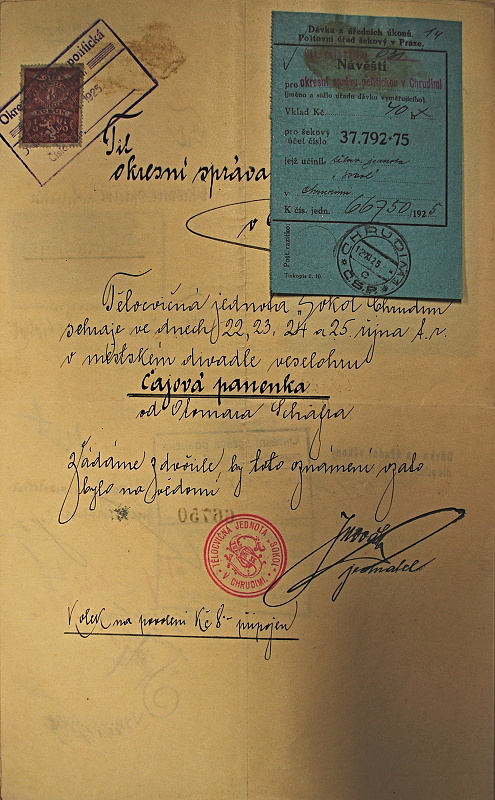 Okresní politická
1925
Dávka z úředních úkonů. 14
Poštovní úřad šekový v Praze.
Návěští
pro okresní správu politickou v Chrudimi
(jméno a sídlo úřadu dávku vyměřujícího)
Vklad Kč 40
pro šekový
účet číslo 37.792-75
jejž učinil těloc. jednota
"Sokol"
v Chrudimi
K čís. jedn. 66750/1925
Pošt. razítko:
CHRUDIM
12.XI.25
C
ČSR
Tiskopis č. 10.
Tit
okresní správa
v
Tělocvičná jednota „Sokol Chrudim
sehraje ve dnech 22, 23, 24 a 25. října t. r.
v městském divadle veselohru
Čajová panenka
od Otomara Schäfra
Žádáme zdvořile, by toto oznámení vzato
bylo na vědomí
66750
TĚLOCVIČNÁ JEDNOTA „SOKOL"
V CHRUDIMI.
Novák
jednatel
Kolek na povolení Kč 8·– připojen